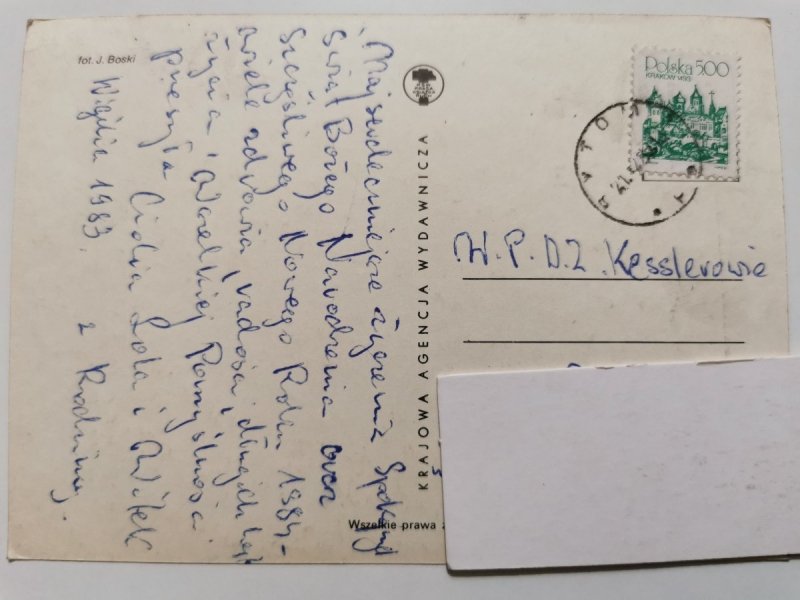 fot. J. Boski
Najserdeczniejsze życzenia Spokojnych
Świąt Bożego Narodzenia oraz
Szczęśliwego Nowego Roku 1984 -
wiele zdrowia, radości, długich lat
życia i wszelkiej Pomyślności
przesyła Ciocia Lola i Witek
z Rodziną.
Wigilia 1983.
KRAJOWA AGENCJA WYDAWNICZA
Polska 500
KRAKÓW 1493
BYTOM
W.P.D.Z. Kesslerowie
Wszelkie prawa